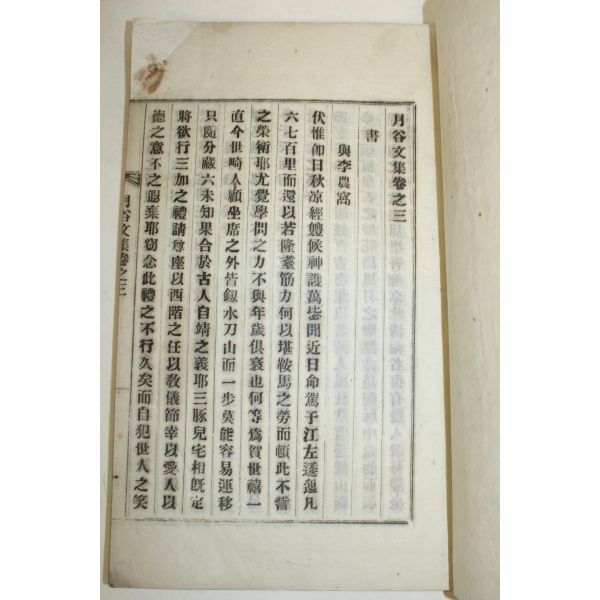 月谷文集卷之三
書
與李農窩
伏惟卽日秋凉經體候神護萬毖聞近日命駕于江左逶迤凡
六七百里而還以若隆耋筋力何以堪鞍馬之勞而頓此不訾
之榮衛耶尤覺學問之力不與年歲俱衰也何等爲賀世禧一
直今世畸人顧坐席之外皆劒水刀山而一步莫能容易運移
只隨分藏六未知果合於古人自靖之義耶三豚兒宅相旣定
將欲行三加之禮請尊座以西階之任以敎儀節幸以愛人以
德之意不之遐棄耶竊念此禮之不行久矣而自犯世人之笑
月谷文集卷之三